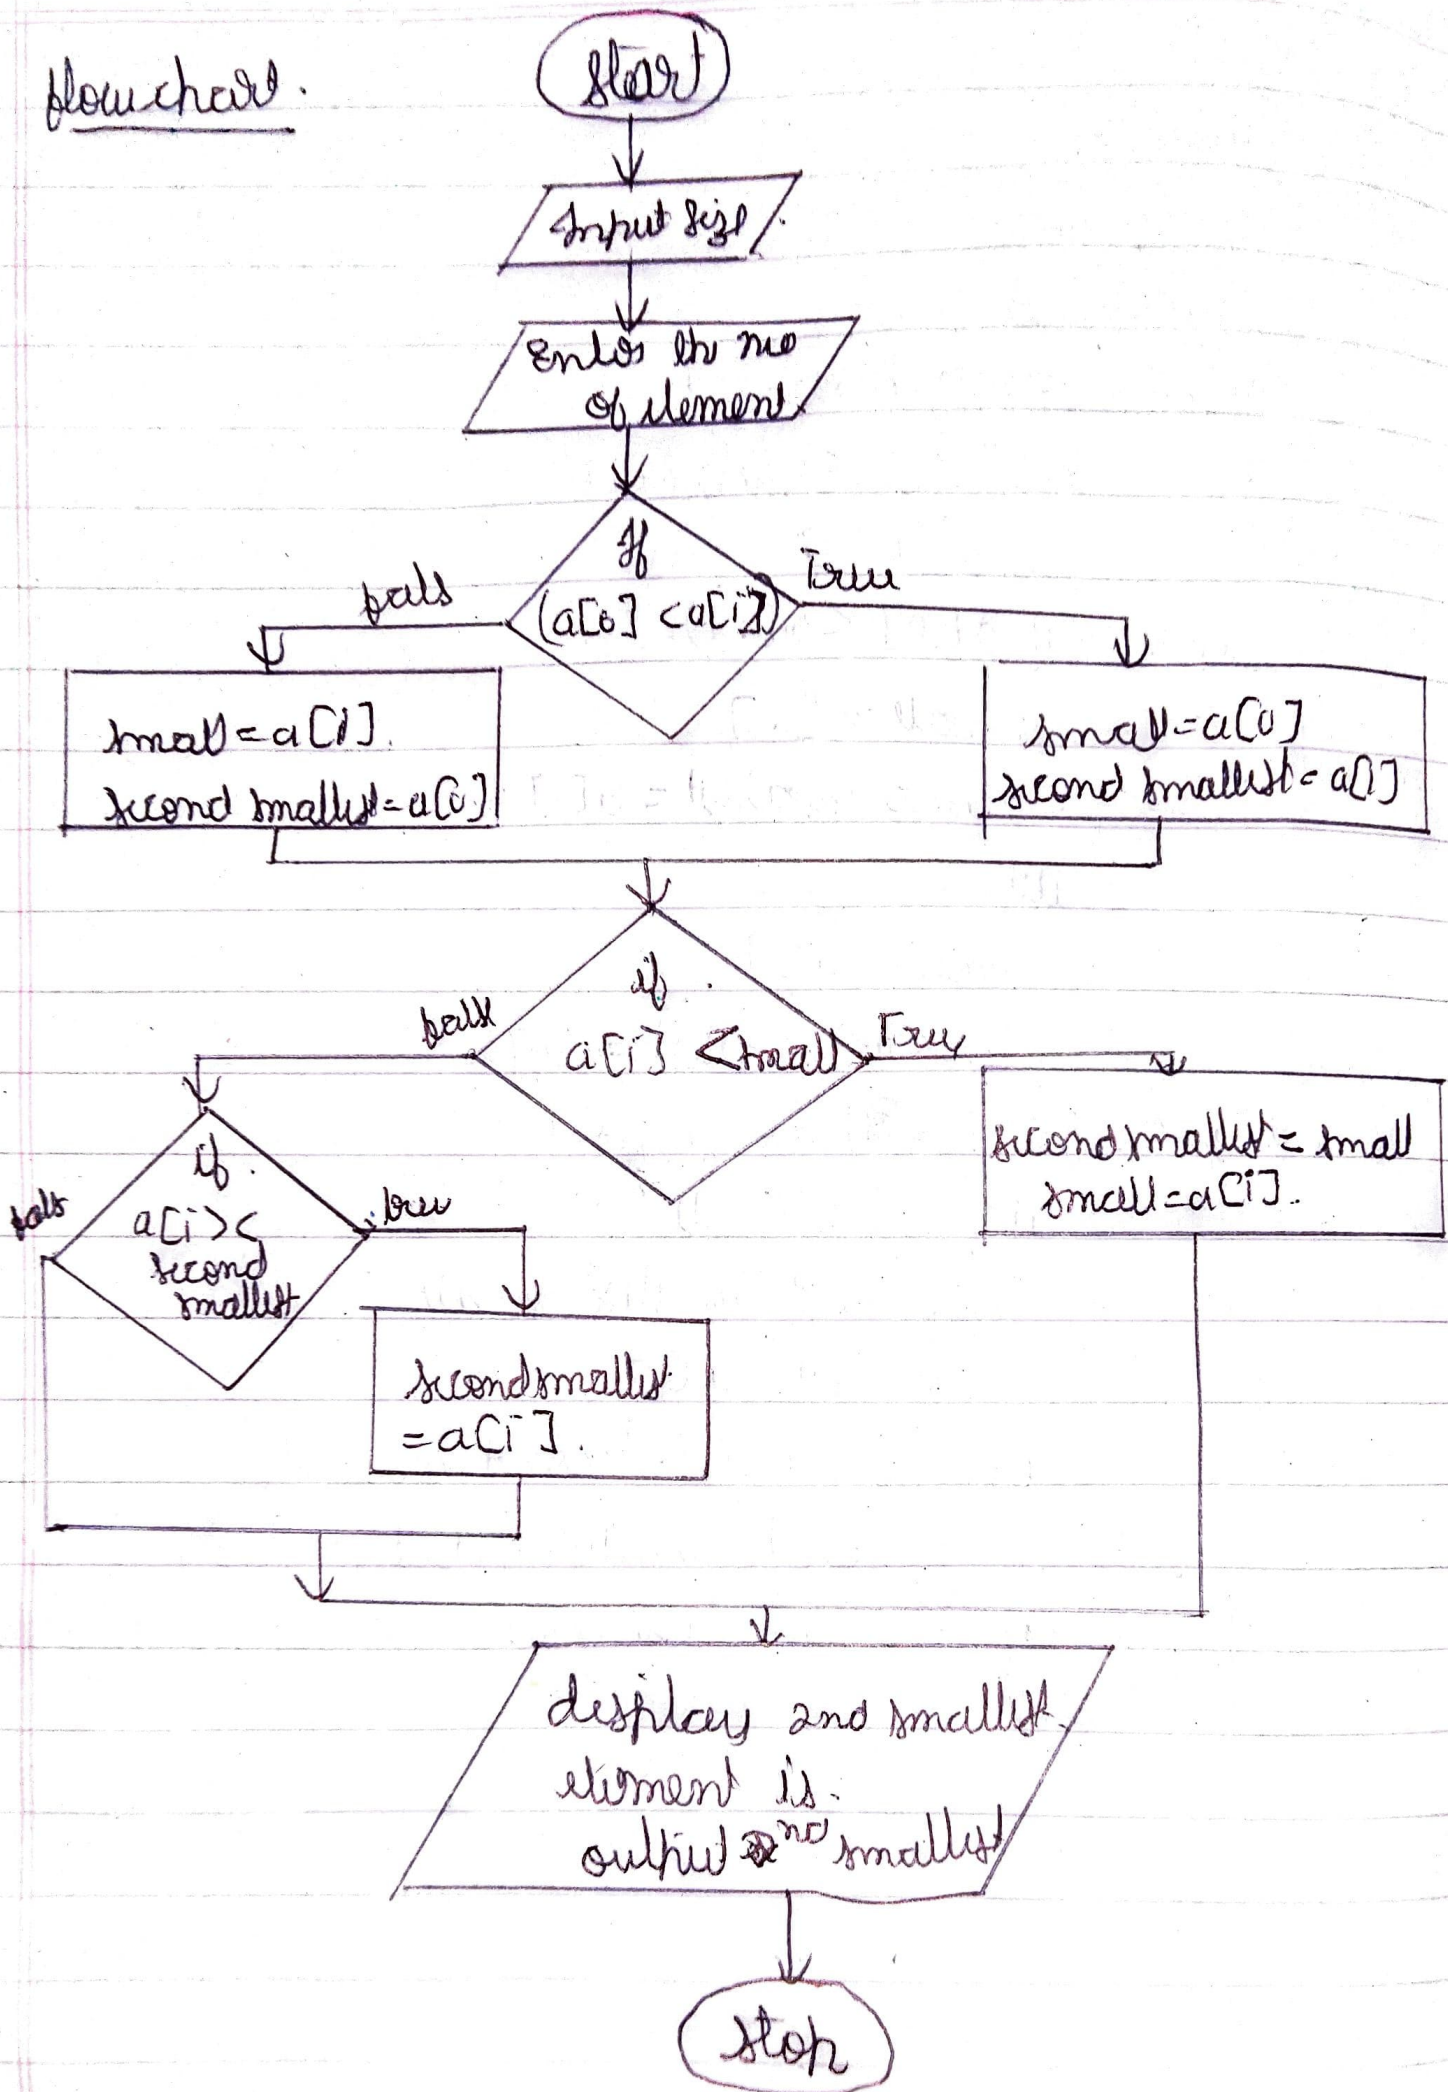 flowchart.
Start
Input size
Enter th no
of element
If
(a[0] < a[i])
fals
True
small = a[1].
second smallest = a[0]
small = a[0]
second smallest = a[1]
if
a[i] < small
fals
True
if
a[i] <
second
smallest
fals
true
second smallest = small
small = a[i].
second smallest
= a[i].
display 2nd smallest
element is.
output nd smallest
stop